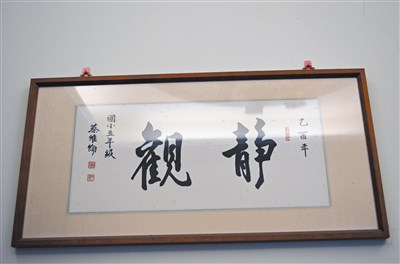 乙酉年
靜觀
國小五年級
蔡維